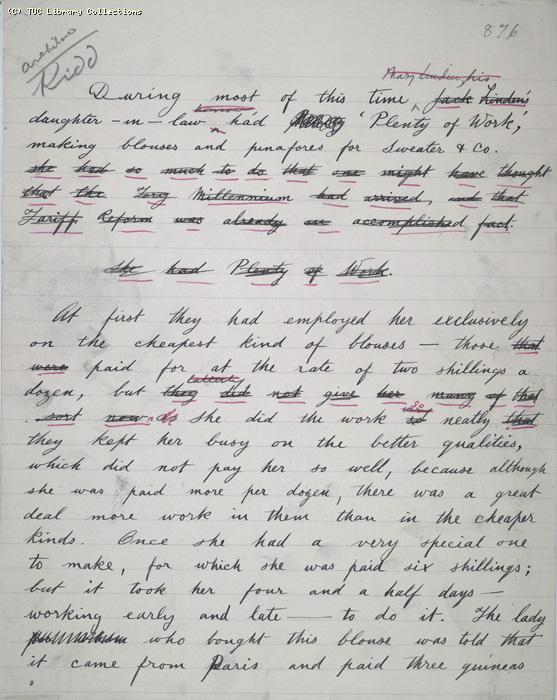 (C) TUC Library Collections
876
Kidd
Mary Linden, his
During most of this time jack Linden's
however
daughter-in-law had 'Plenty of Work',
making blouses and pinafores for Sweater & Co.
she had so much to do that one might have thought
that the Tory Millennium had arrived, and that
Tariff Reform was already an accomplished fact.
She had Plenty of Work.
At first they had employed her exclusively
on the cheapest kind of blouses — those that
were paid for at the rate of two shillings a
dozen, but they did not give her many of that
sort now. As she did the work so neatly that
they kept her busy on the better qualities,
which did not pay her so well, because although
she was paid more per dozen, there was a great
deal more work in them than in the cheaper
kinds. Once she had a very special one
to make, for which she was paid six shillings;
but it took her four and a half days —
working early and late — to do it. The lady
who bought this blouse was told that
it came from Paris and paid three guineas